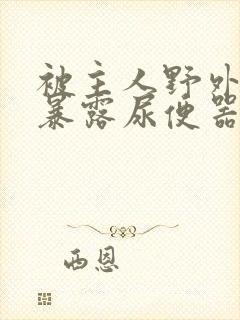 被主人野外
暴露尿便器
西恩